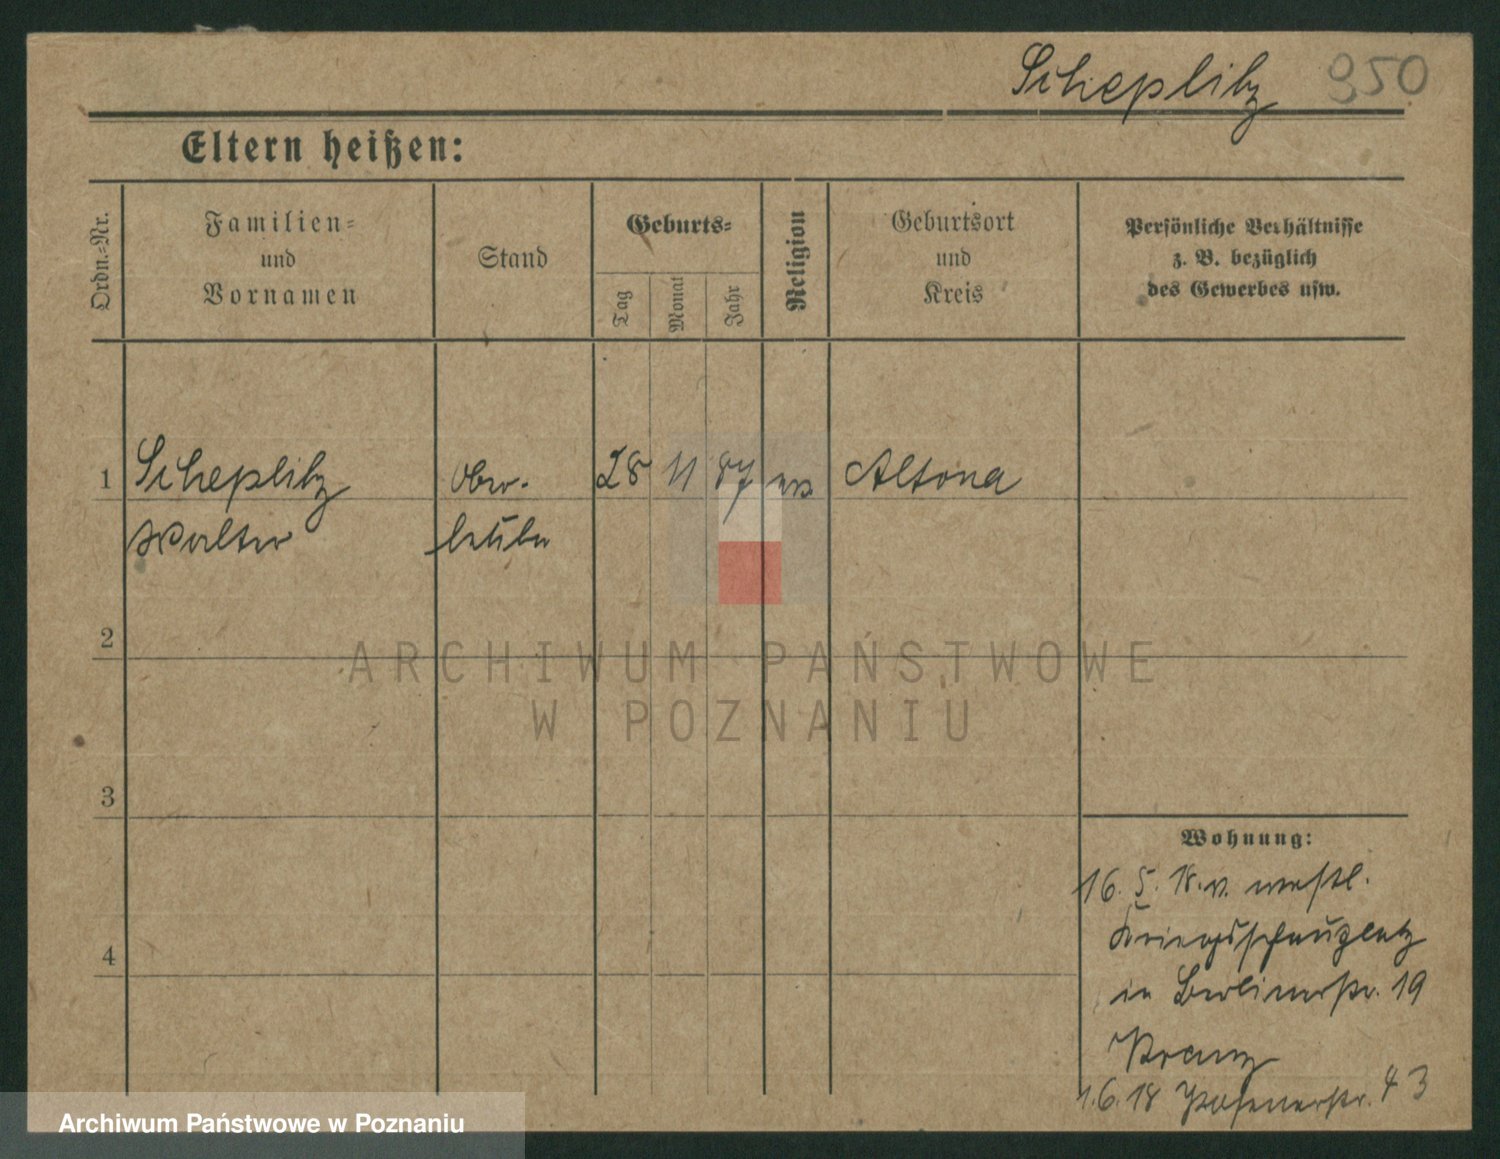 Scheplitz 950
Eltern heißen:
Ordn.-Nr.
Familien-
und
Vornamen
Stand
Geburts-
Tag
Monat
Jahr
Religion
Geburtsort
und
Kreis
Persönliche Verhältnisse
z. B. bezüglich
des Gewerbes usw.
1 Scheplitz Ober- 28 11 87 Altona
Walter
2
3
4
Wohnung:
16. 5. 18. v. westl.
Kriegsschauplatz
in Berlinerstr. 19
1.6.18 Posenerstr. 43
ARCHIWUM PAŃSTWOWE
W POZNANIU
Archiwum Państwowe w Poznaniu